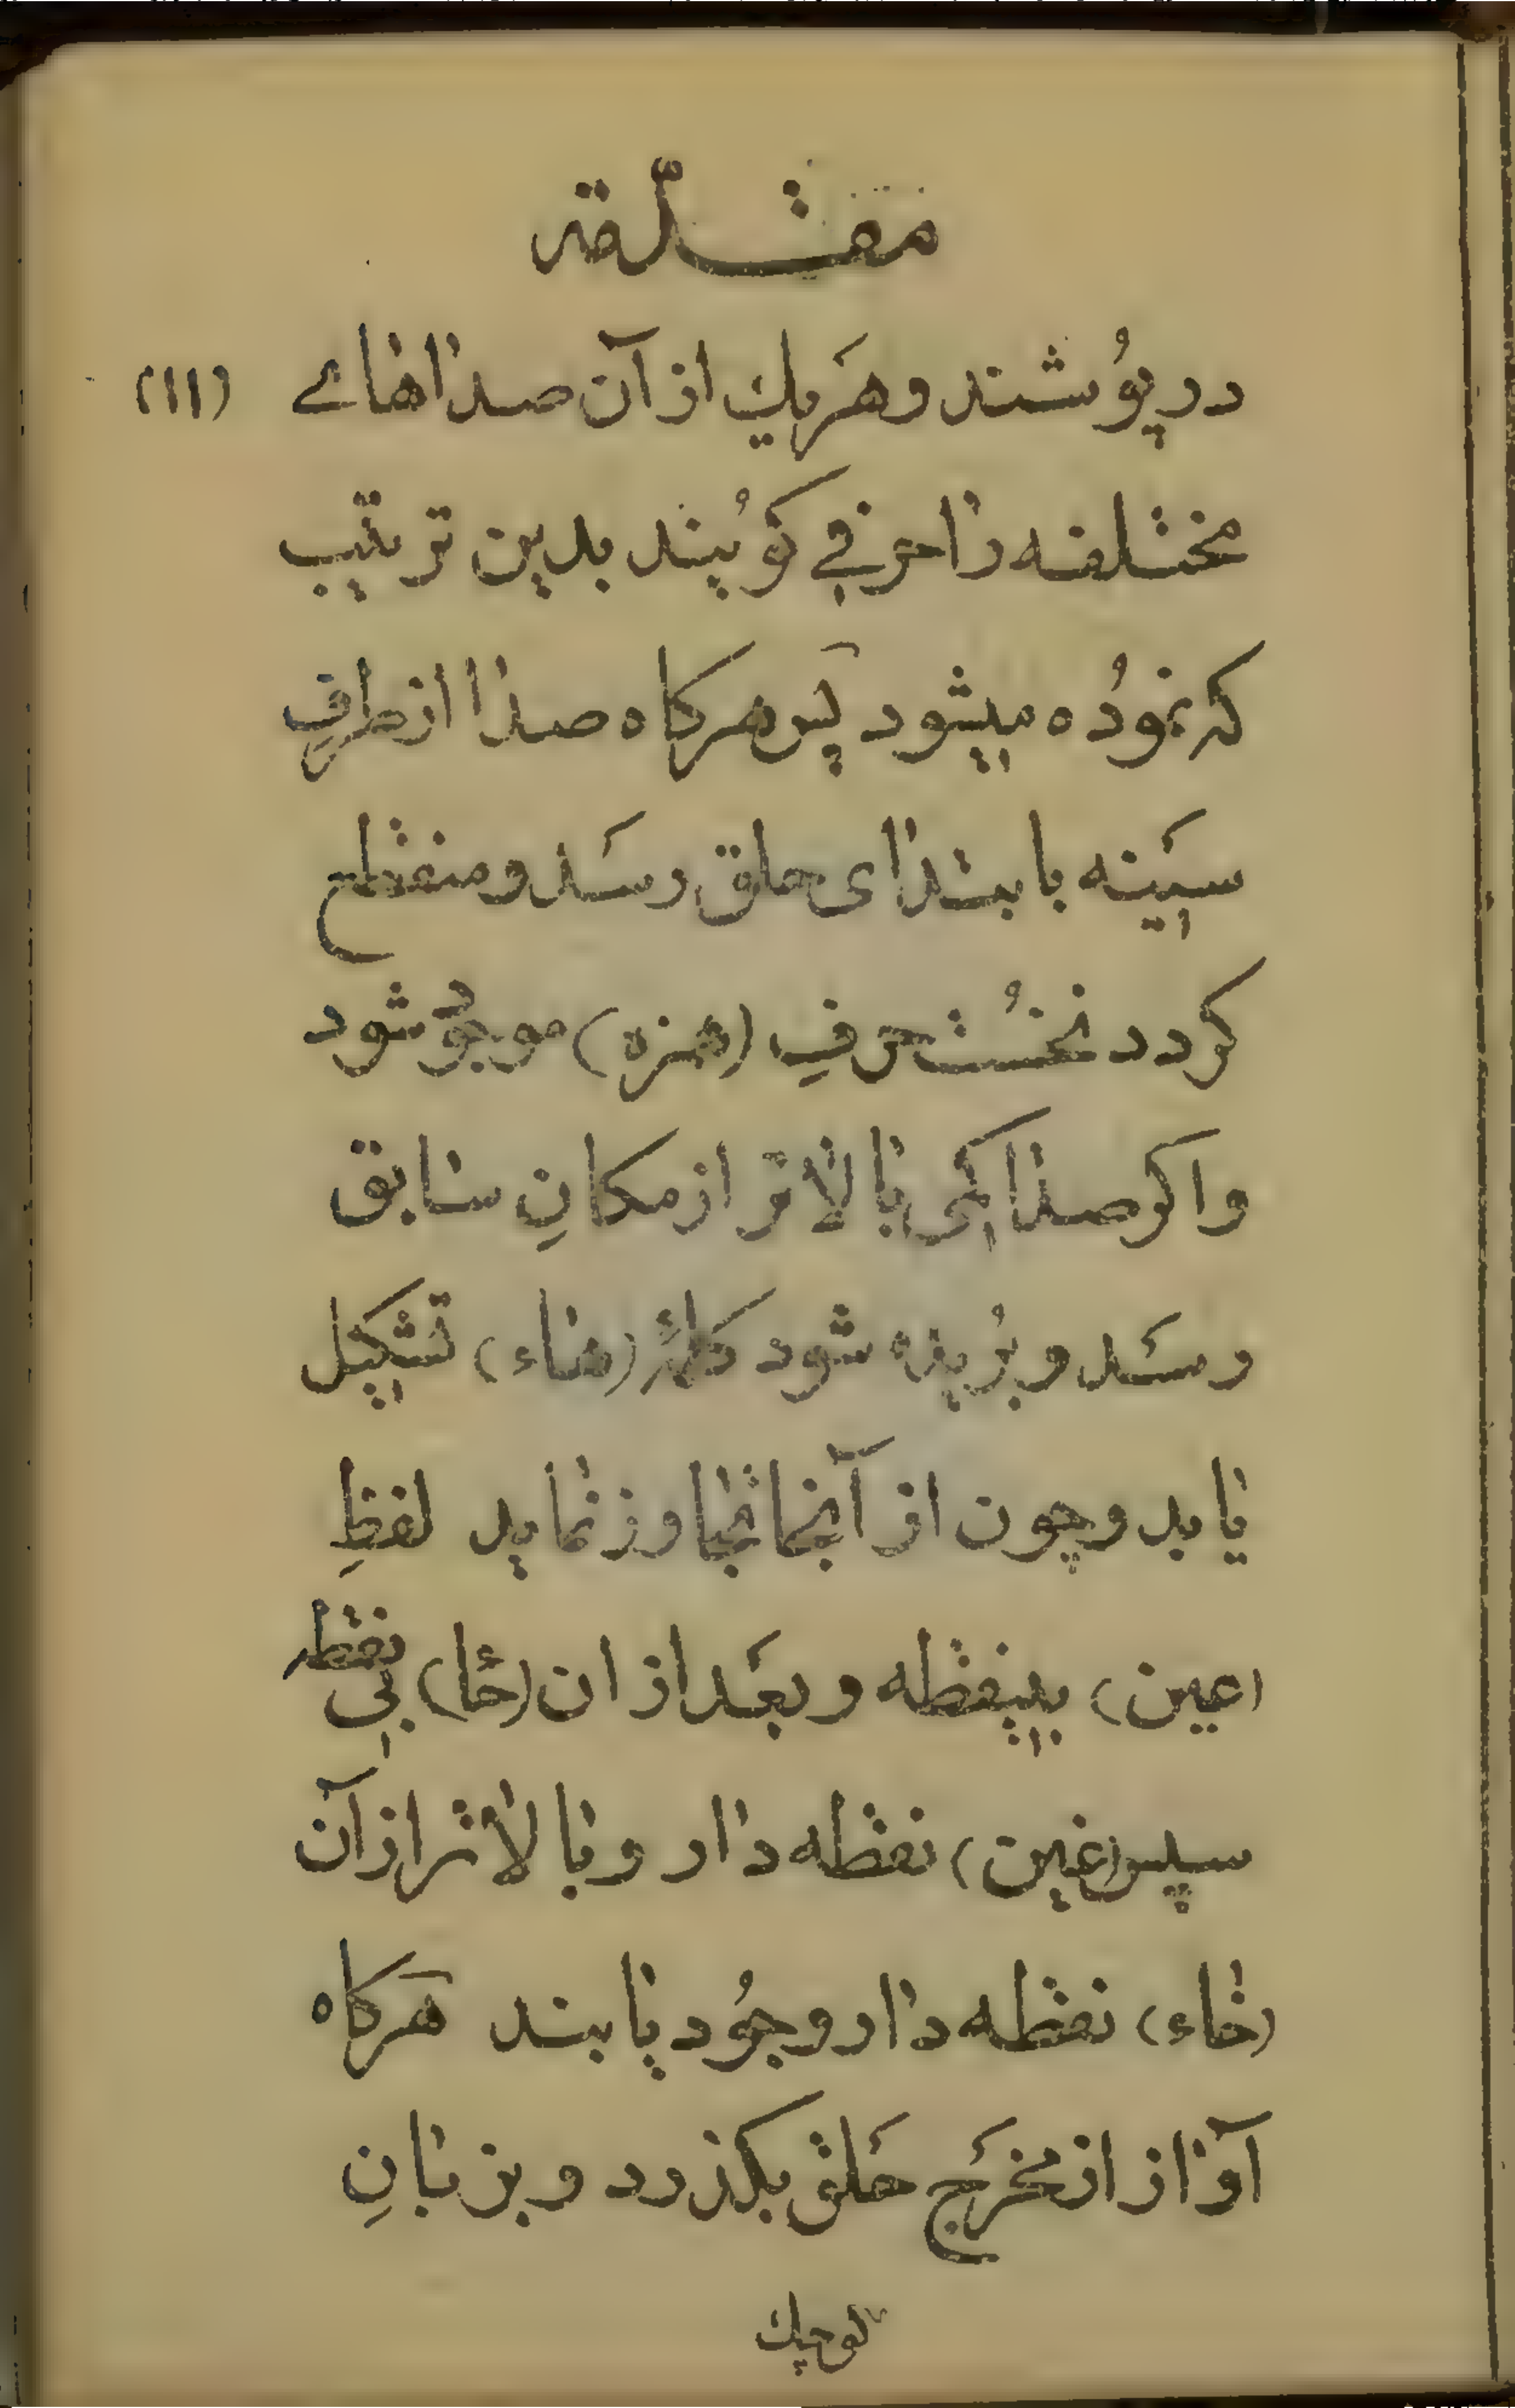 مقدّمة
در پوُشند و هَر يك از آن صداهائے (١١)
مختلفه را حرفے گوُيند بدين ترتيب
كه نموُده ميشود پَس هرگاه صدا از طرفِ
سَينه بابتداى حلق رسَد و منقطع
گردد نخسُت حرفِ (همزه) موجوُد شود
و اگر صدا كمى بالاتر از مكانِ سابق
رسَد و بُريده شود كلمۀ (هاء) تشكيل
يابد و چون از آنجا تجاوز نمايد لفظِ
(عين) بينقطه و بعَد از ان (حا) بى نقطه
سپس (غين) نقطه دار و بالاتر از آن
(خاء) نقطه دار وجوُد يابند هَرگاه
آواز از مخرَج حَلق بگذرد و بزبانِ
كوچك